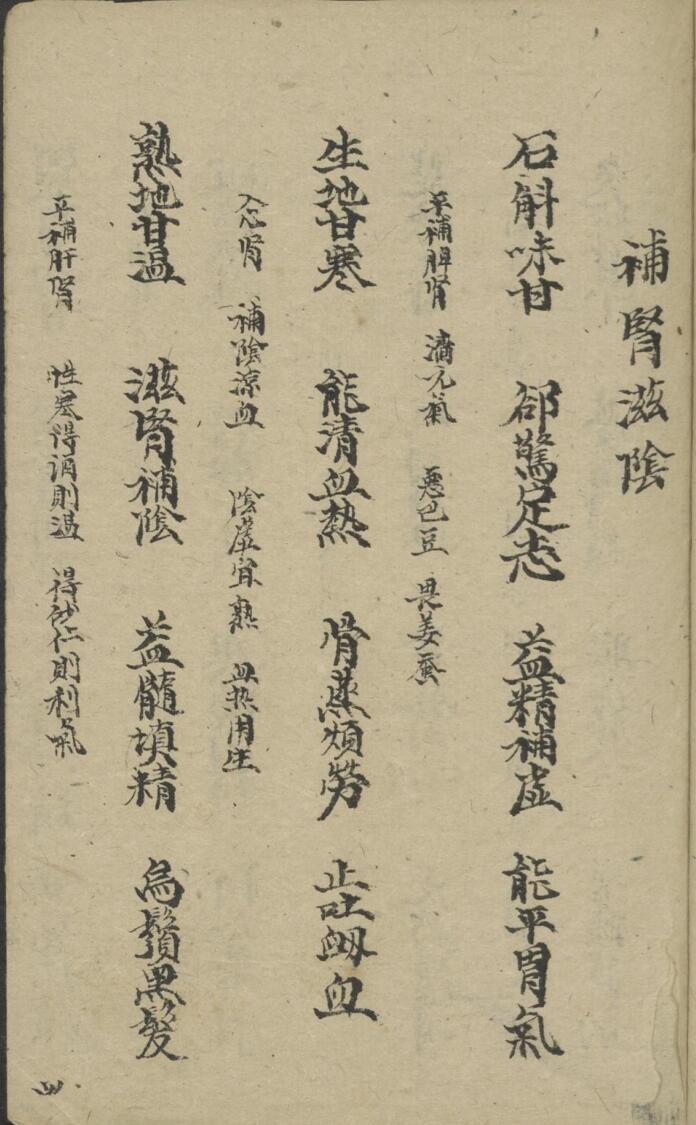 補腎滋陰
石斛味甘 郤驚定志 益精補虛 能平胃氣
平補脾肾 濇元氣 惡巴豆 畏姜蚕
生地甘寒 能清血熱 骨蒸煩勞 止吐衂血
入心肾 補陰凉血 陰虛宜熟 血热用生
熟地甘温 滋腎補陰 益髓填精 烏鬚黑髮
平補肝腎 性寒得酒則温 得砂仁則利氣